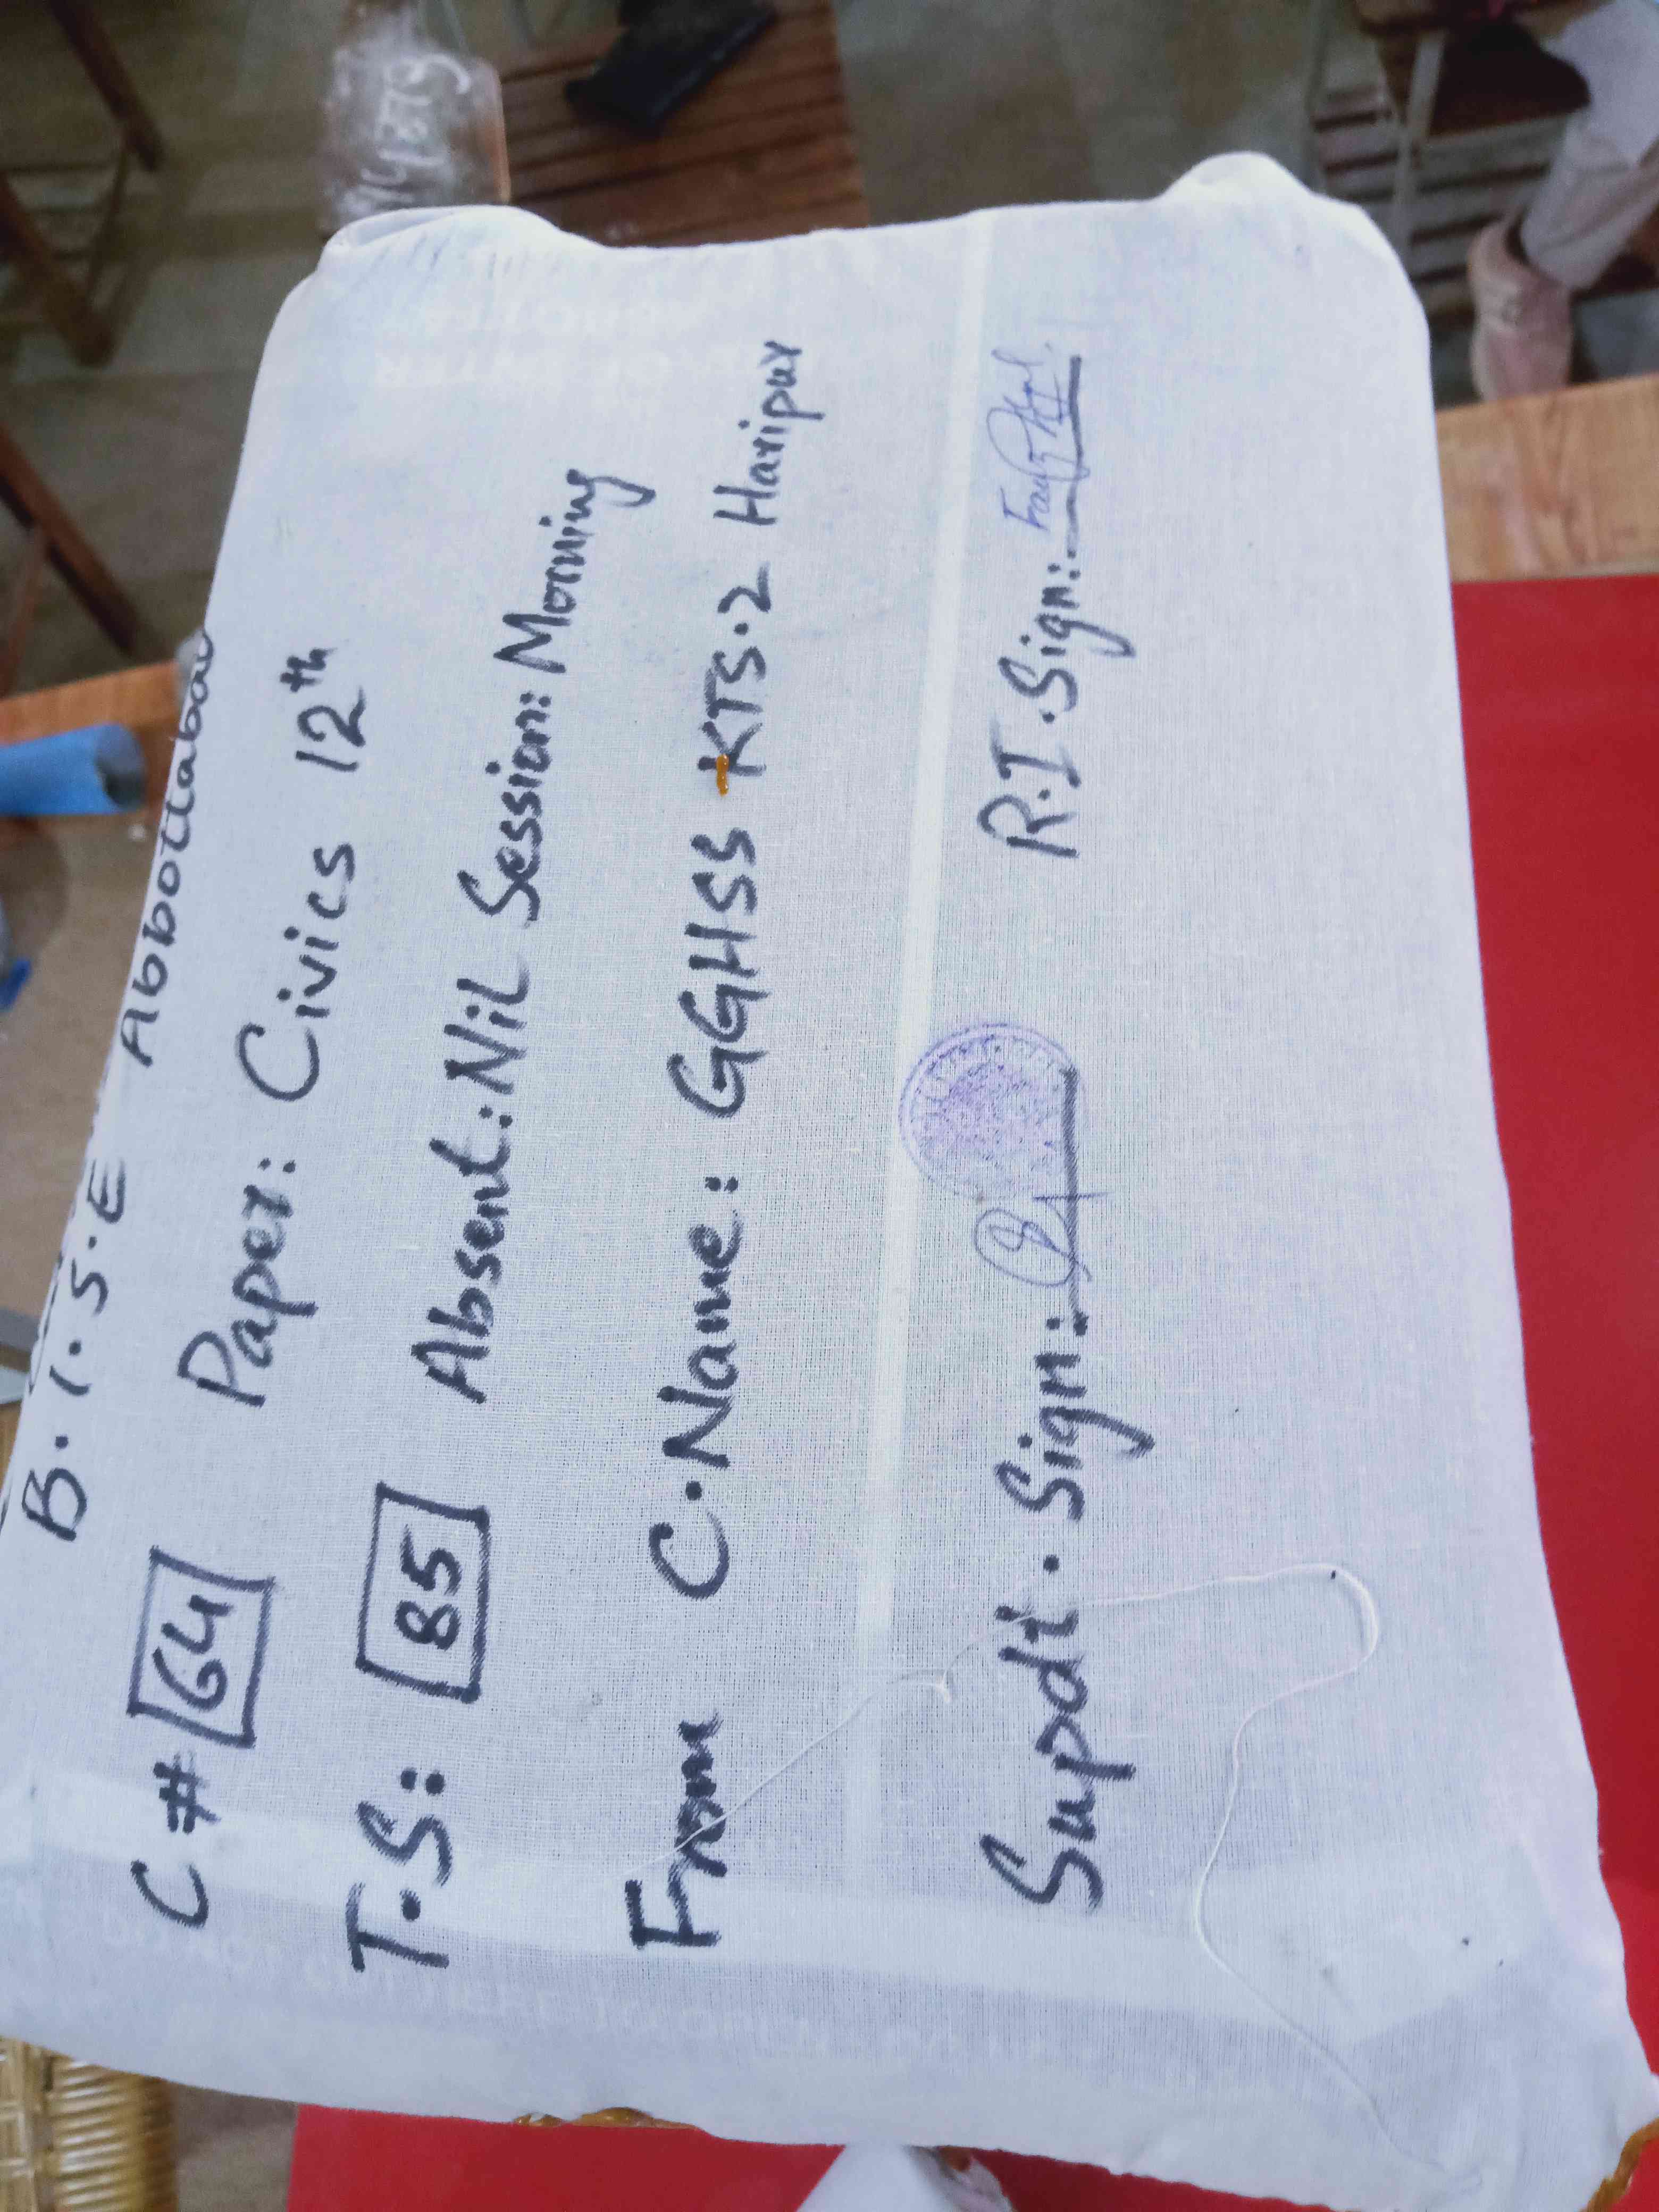 B.I.S.E Abbottabad
C # 64 Paper: Civics 12th
T.S: 85 Absent: NiL Session: Morning
From C.Name: GGHSS KTS.2 Haripur
Supdt. Sign: R.I. Sign: